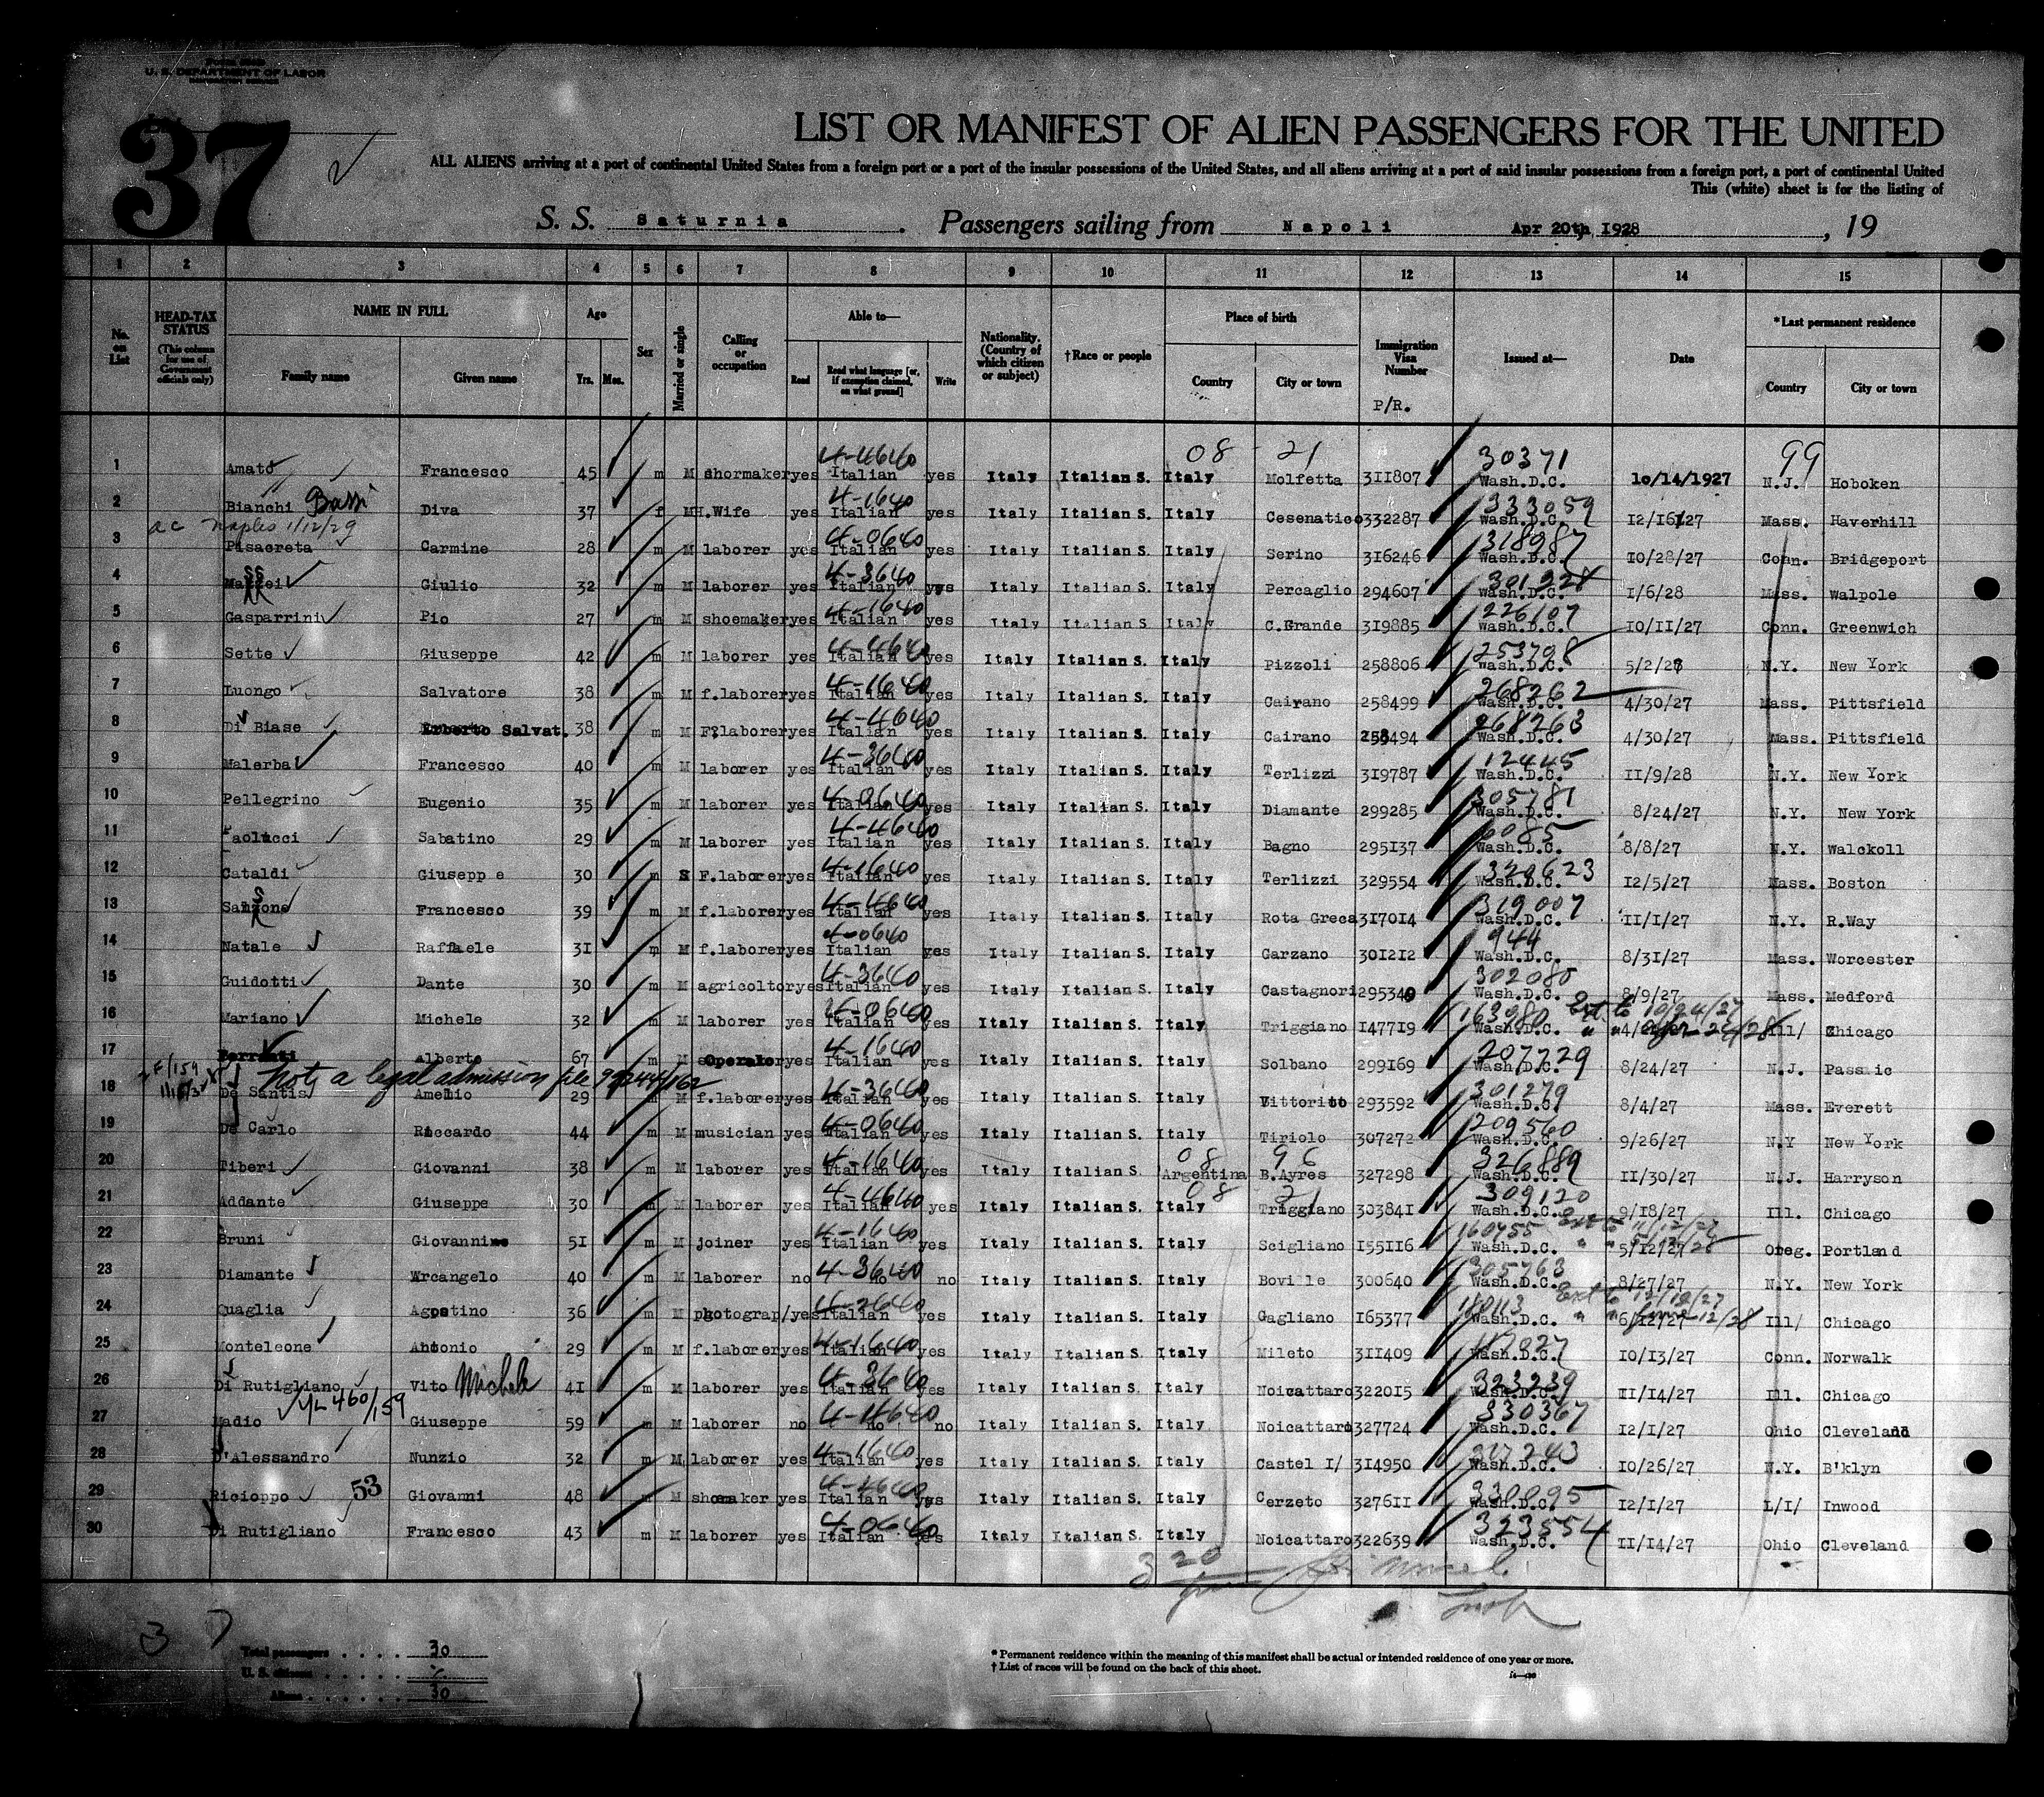 U. S. DEPARTMENT OF LABOR
37
LIST OR MANIFEST OF ALIEN PASSENGERS FOR THE UNITED
ALL ALIENS arriving at a port of continental United States from a foreign port or a port of the insular possessions of the United States, and all aliens arriving at a port of said insular possessions from a foreign port, a port of continental United
This (white) sheet is for the listing of
S. S. Saturnia . Passengers sailing from Napoli Apr 20th 1928 , 19
1 2 3 4 5 6 7 8 9 10 11 12 13 14 15
No. on List
HEAD-TAX STATUS (This column for use of Government officials only)
NAME IN FULL Family name Given name
Age Yrs. Mos.
Sex
Married or single
Calling or occupation
Able to— Read Read what language [or, if exemption claimed, on what ground] Write
Nationality. (Country of which citizen or subject)
†Race or people
Place of birth Country City or town
Immigration Visa Number P/R.
Issued at—
Date
*Last permanent residence Country City or town
08 - 21 99
1 Amato Francesco 45 m M shormaker yes 4-4640 Italian yes Italy Italian S. Italy Molfetta 311807 30371 Wash.D.C. 10/14/1927 N.J. Hoboken
2 Bianchi Bassi Diva 37 f M H.Wife yes 4-1640 Italian yes Italy Italian S. Italy Cesenatico 332287 333059 Wash.D.C. 12/16/27 Mass. Haverhill
ac Naples 1/12/29
3 Pisacreta Carmine 28 m M laborer yes 4-0640 Italian yes Italy Italian S. Italy Serino 316246 318987 Wash.D.C. 10/28/27 Conn. Bridgeport
4 Giulio 32 m M laborer yes 4-3640 Italian yes Italy Italian S. Italy Percaglio 294607 301228 Wash.D.C. 1/6/28 Mass. Walpole
5 Gasparrini Pio 27 m M shoemaker yes 4-1640 Italian yes Italy Italian S Italy C.Grande 319885 226107 Wash.D.C. 10/11/27 Conn. Greenwich
6 Sette Giuseppe 42 m M laborer yes 4-4640 Italian yes Italy Italian S. Italy Pizzoli 258806 253798 Wash.D.C. 5/2/27 N.Y. New York
7 Luongo Salvatore 38 m M f.laborer yes 4-1640 Italian yes Italy Italian S. Italy Cairano 258499 268262 Wash.D.C. 4/30/27 Mass. Pittsfield
8 Di Biase Salvat. 38 m M F.laborer yes 4-4640 Italian yes Italy Italian S. Italy Cairano 258494 268263 Wash.D.C. 4/30/27 Mass. Pittsfield
9 Malerba Francesco 40 m M laborer yes 4-3640 Italian yes Italy Italian S. Italy Terlizzi 319787 12445 Wash.D.C. 11/9/28 N.Y. New York
10 Pellegrino Eugenio 35 m M laborer yes Italian yes Italy Italian S. Italy Diamante 299285 305781 Wash.D.C. 8/24/27 N.Y. New York
11 Paolucci Sabatino 29 m M laborer yes 4-4640 Italian yes Italy Italian S. Italy Bagno 295137 6085 Wash.D.C. 8/8/27 N.Y. Walckoll
12 Cataldi Giusepp e 30 m S F.laborer yes 4-1640 Italian yes Italy Italian S. Italy Terlizzi 329554 Wash.D.C. 12/5/27 Mass. Boston
13 Francesco 39 m M f.laborer yes 4-4640 Italian yes Italy Italian S. Italy Rota Greca 317014 319007 Wash.D.C. 11/1/27 N.Y. R.Way
14 Natale Raffaele 31 m M f.laborer yes 4-0640 Italian yes Italy Italian S. Italy Garzano 301212 944 Wash.D.C. 8/31/27 Mass. Worcester
15 Guidotti Dante 30 m M agricoltor yes 4-3640 Italian yes Italy Italian S. Italy Castagnori 295340 302080 Wash.D.C. 8/9/27 Mass. Medford
16 Mariano Michele 32 m M laborer yes 4-0640 Italian yes Italy Italian S. Italy Triggiano 147719 163980 Wash.D.C. Ext. to 10/24/27 Ill/ Chicago
17 Ferranti Alberto 67 m M Operator yes 4-1640 Italian yes Italy Italian S. Italy Solbano 299169 207729 Wash.D.C. 8/24/27 N.J. Passaic
Not a legal admission file
18 De Santis Amelio 29 m M f.laborer yes 4-3640 Italian yes Italy Italian S. Italy Vittorito 293592 301279 Wash.D.C. 8/4/27 Mass. Everett
19 De Carlo Riccardo 44 m M musician yes 4-0640 Italian yes Italy Italian S. Italy Tiriolo 307272 209560 Wash.D.C. 9/26/27 N.Y New York
08 96
20 Tiberi Giovanni 38 m M laborer yes 4-1640 Italian yes Italy Italian S. Argentina B.Ayres 327298 326889 Wash.D.C. 11/30/27 N.J. Harryson
08 21
21 Addante Giuseppe 30 m M laborer yes 4-4640 Italian yes Italy Italian S. Italy Triggiano 303841 309120 Wash.D.C. 9/18/27 Ill. Chicago
22 Bruni Giovannine 51 m M joiner yes 4-1640 Italian yes Italy Italian S. Italy Scigliano 155116 160455 Wash.D.C. 5/12/27 Oreg. Portland
23 Diamante Arcangelo 40 m M laborer no 4-3640 no no Italy Italian S. Italy Boville 300640 305763 Wash.D.C. 8/27/27 N.Y. New York
24 Quaglia Agostino 36 m M photograp/ yes 4-2640 Italian yes Italy Italian S. Italy Gagliano 165377 Wash.D.C. Ext to 12/12/27 6/12/27 Ill/ Chicago
25 Monteleone Antonio 29 m M f.laborer yes 4-1640 Italian yes Italy Italian S. Italy Mileto 311409 Wash.D.C. 10/13/27 Conn. Norwalk
26 Di Rutigliano Vito Michele 41 m M laborer yes 4-3640 Italian yes Italy Italian S. Italy Noicattaro 322015 323239 Wash.D.C. 11/14/27 Ill. Chicago
27 Madio Giuseppe 59 m M laborer no 4-4640 no no Italy Italian S. Italy Noicattaro 327724 330367 Wash.D.C. 12/1/27 Ohio Cleveland
28 D'Alessandro Nunzio 32 m M laborer yes 4-1640 Italian yes Italy Italian S. Italy Castel I/ 314950 Wash.D.C. 10/26/27 N.Y. B'klyn
29 Ricioppo 53 Giovanni 48 m M shomaker yes 4-4640 Italian yes Italy Italian S. Italy Cerzeto 327611 330095 Wash.D.C. 12/1/27 L/I/ Inwood
30 Di Rutigliano Francesco 43 m M laborer yes 4-0640 Italian yes Italy Italian S. Italy Noicattaro 322639 323554 Wash.D.C. 11/14/27 Ohio Cleveland
3 7
Total passengers . . . . 30
U. S. citizens . . . .
Aliens . . . . . . 30
* Permanent residence within the meaning of this manifest shall be actual or intended residence of one year or more.
† List of races will be found on the back of this sheet.